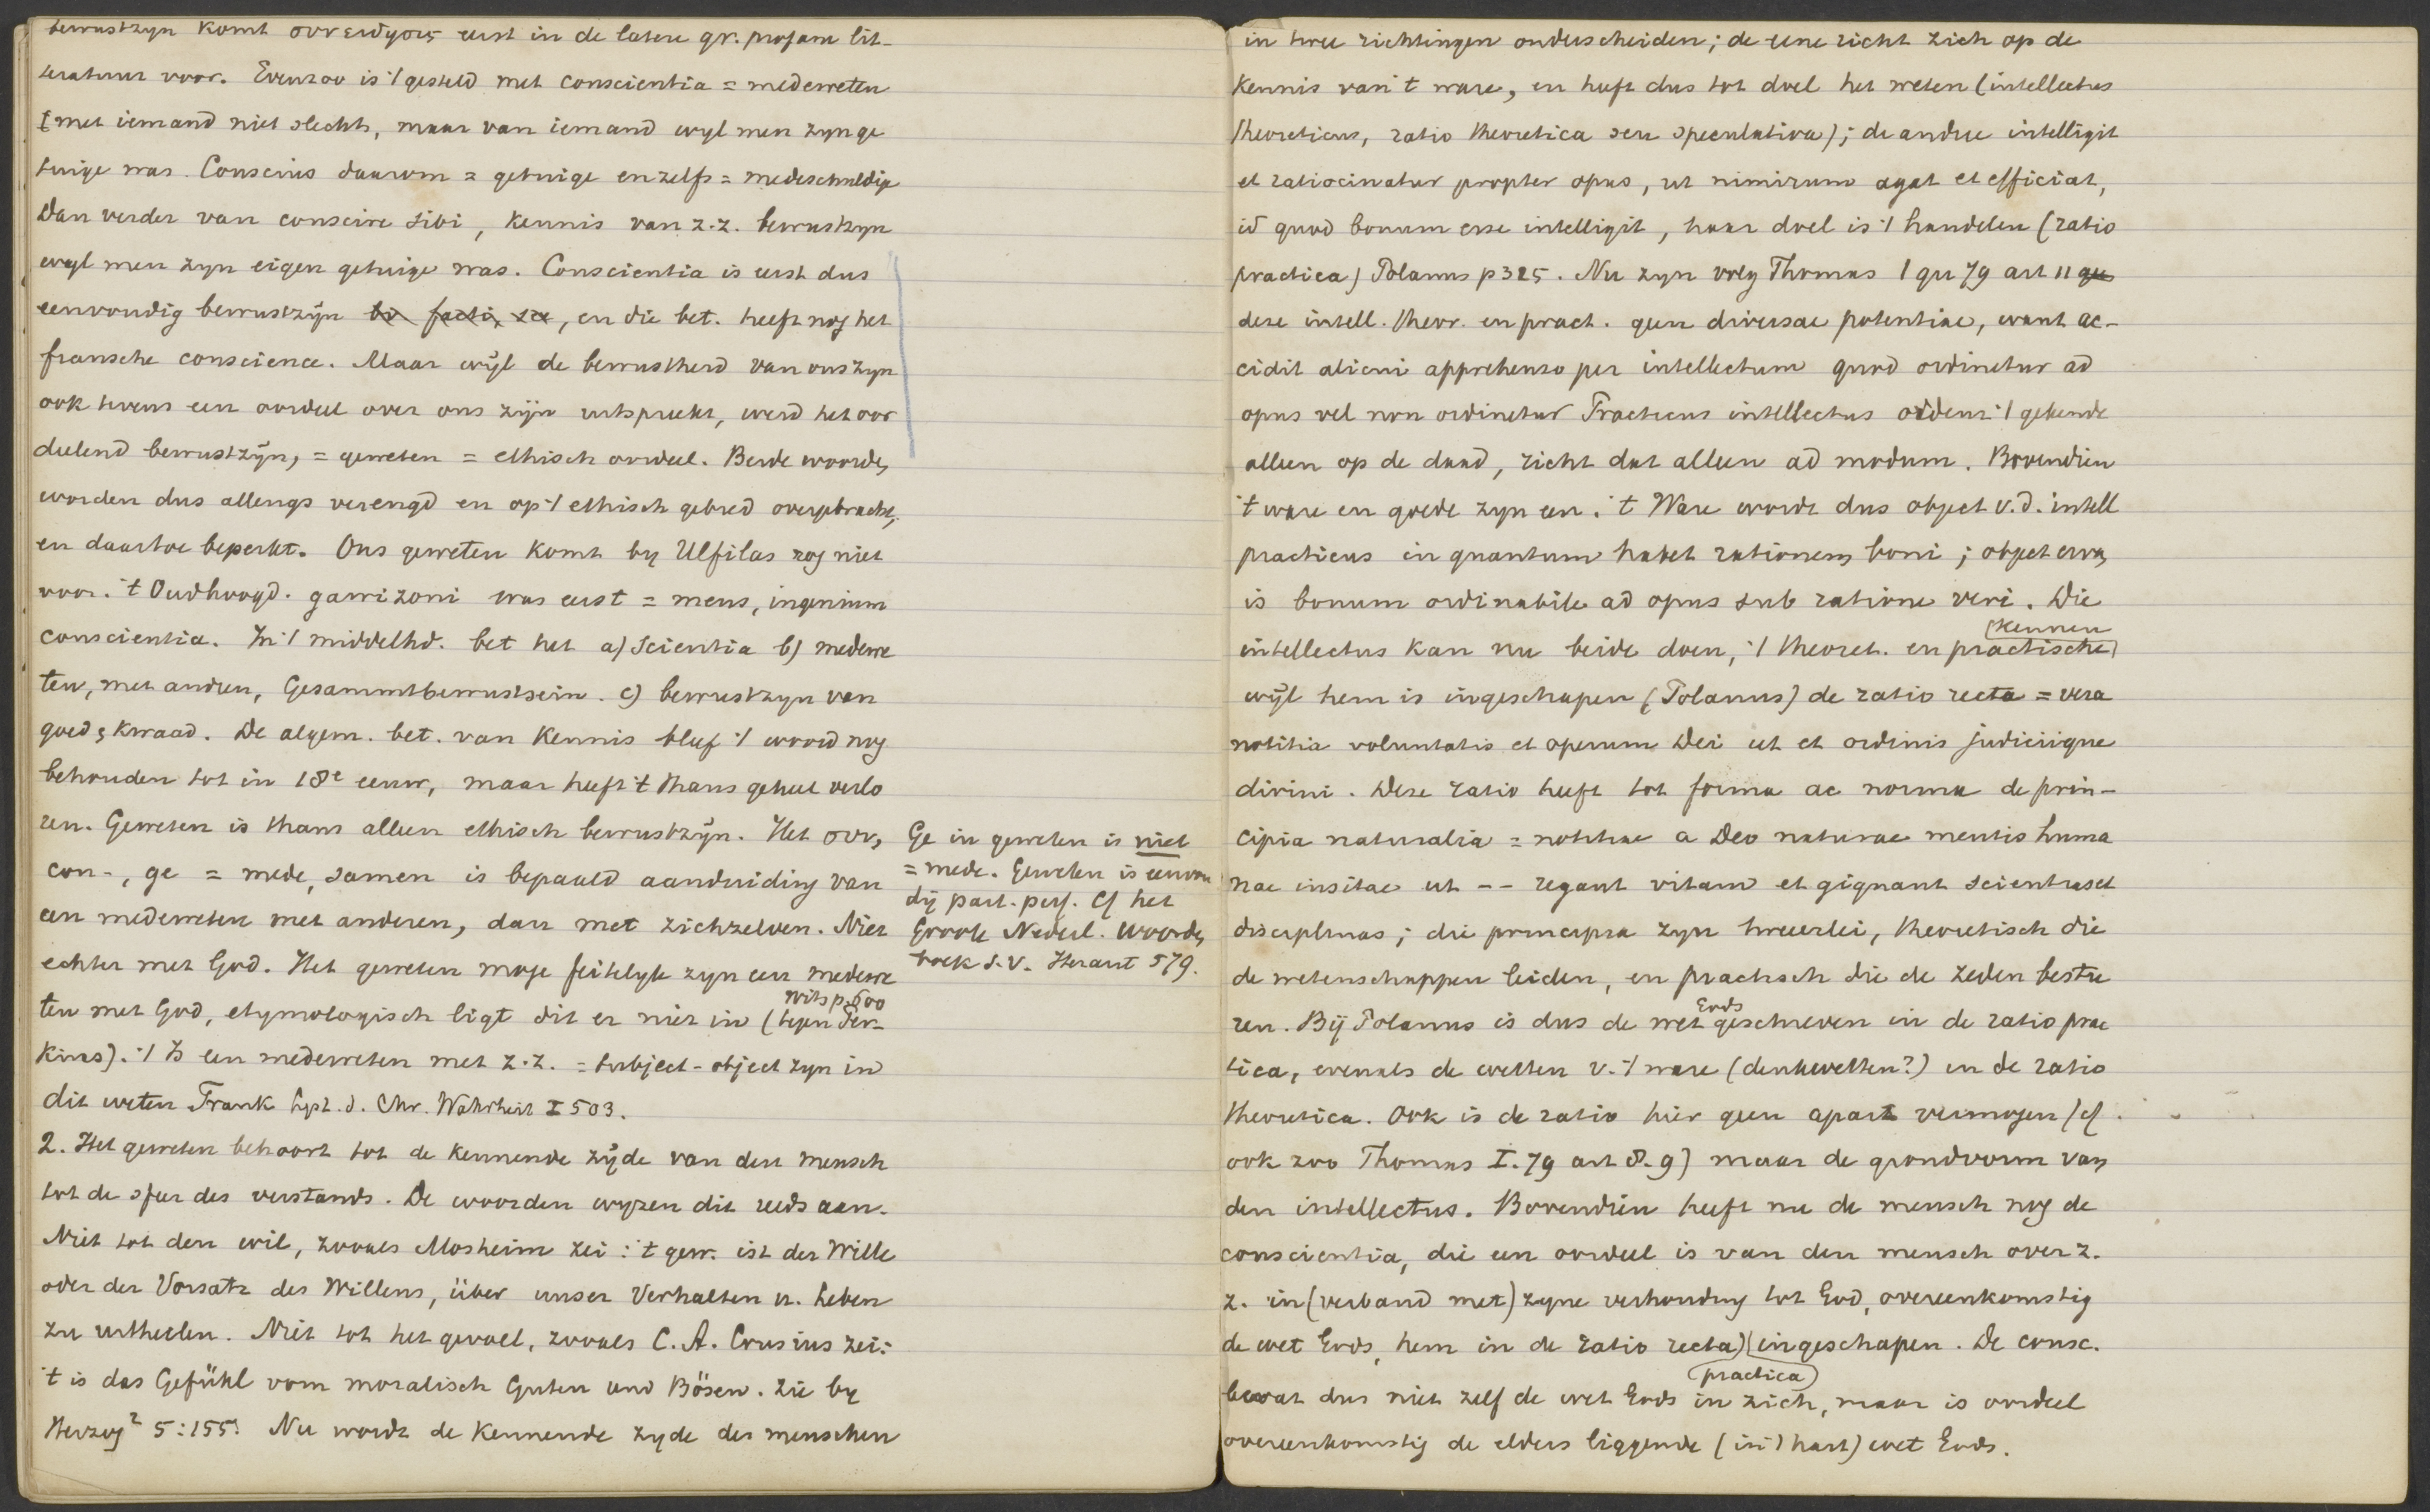 bewustzyn komt συνειδησις eerst in de latere gr. profane lit-
teratuur voor. Evenzoo is 't gesteld met conscientia = medeweten
[met iemand niet slechts, maar van iemand wyl men zyn ge
tuige was. Conscius daarom = getuige en zelfs = medeschuldige
Dan verder van conscire sibi, kennis van z.z. bewustzyn
wyl men zyn eigen getuige was. Conscientia is eerst dus
eenvoudig bewustzijn bv facti, en die bet. heeft nog het
fransche conscience. Maar wijl de bewustheid van ons zyn
ook tevens een oordeel over ons zijn uitspreekt, werd het oor
deelend bewustzijn, = geweten = ethisch oordeel. Beide woorden
worden dus allengs verengd en op 't ethisch gebied overgebracht,
en daartoe beperkt. Ons geweten komt by Ulfilas nog niet
voor. 't Oudhoogd. gawizoni was eerst = mens, ingenium
conscientia. In 't middelhd. bet het a) scientia b) medewe
ten, met andren, Gesammtbewustsein. c) bewustzyn van
goed & kwaad. De algem. bet. van kennis bleef 't woord nog
behouden tot in 18e eeuw, maar heeft 't thans geheel verlo
ren. Geweten is thans alleen ethisch bewustzijn. Het συν,
con-, ge = mede, samen is bepaald aanduiding van
een medeweten met anderen, dan met zichzelven. Niet
echter met God. Het geweten moge feitelyk zyn een medewe
ten met God, etymologisch ligt dit er niet in (tegen Per-
Wits p. 600
kins). 't Is een medeweten met z.z. = subject-object zyn in
dit weten Frank Syst. d. Chr. Wahrheit I 503.
2. Het geweten behoort tot de kennende zijde van den mensch
tot de sfeer des verstands. De woorden wyzen dit reeds aan.
Niet tot den wil, zooals Mosheim zei: 't gew. ist der Wille
oder der Vorsatz des Willens, über unser Verhalten u. Leben
zu urtheilen. Niet tot het gevoel, zooals C. A. Crusius zei:
't is das Gefühl vom moralisch Guten und Bösen. Zie by
Herzog² 5:155. Nu wordt de kennende zyde des menschen
Ge in geweten is niet
= mede. Geweten is eenvou
dig part. perf. Cf het
Groote Nederl. Woorden
boek s.v. Heraut 579.
in twee richtingen onderscheiden; de eene richt zich op de
kennis van 't ware, en heeft dus tot doel het weten (intellectus
theoreticus, ratio theoretica seu speculativa); de andre intelligit
et ratiocinatur propter opus, ut nimirum agat et efficiat,
id quod bonum esse intelligit, haar doel is 't handelen (ratio
practica) Polanus p 325. Nu zyn volg Thomas I qu 79 art 11 qu
deze intell. theor. en pract. geen diversae potentiae, want ac-
cidit alicui apprehenso per intellectum quod ordinetur ad
opus vel non ordinetur Practicus intellectus ordent 't gekende
alleen op de daad, richt dat alleen ad modum. Bovendien
't ware en goede zyn een. 't Ware wordt dus object v.d. intell
practicus in quantum habet rationem boni; object ervan
is bonum ordinabile ad opus sub ratione veri. Die
intellectus kan nu beide doen, 't theoret. en practische
(kennen
wijl hem is ingeschapen (Polanus) de ratio recta = vera
notitia voluntatis et operum Dei ut et ordinis judiciique
divini. Deze ratio heeft tot forma ac norma de prin-
cipia naturalia = notitiae a Deo naturae mentis huma
nae insitae ut -- regant vitam et gignant scientias et
disciplinas; die principia zyn tweeerlei, theoretisch die
de wetenschappen leiden, en practisch die de zeden bestu
ren. Bij Polanus is dus de wet Gods geschreven in de ratio prac
tica, evenals de wetten v. 't ware (denkwetten?) in de ratio
theoretica. Ook is de ratio hier geen apart vermogen (cf.
ook zoo Thomas I. 79 art 8. 9) maar de grondvorm van
den intellectus. Bovendien heeft nu de mensch nog de
conscientia, die een oordeel is van den mensch over z.
z. in (verband met) zyne verhouding tot God, overeenkomstig
de wet Gods, hem in de ratio recta) (ingeschapen. De consc.
(practica)
bevat dus niet zelf de wet Gods in zich, maar is oordeel
overeenkomstig de elders liggende (in 't hart) wet Gods.